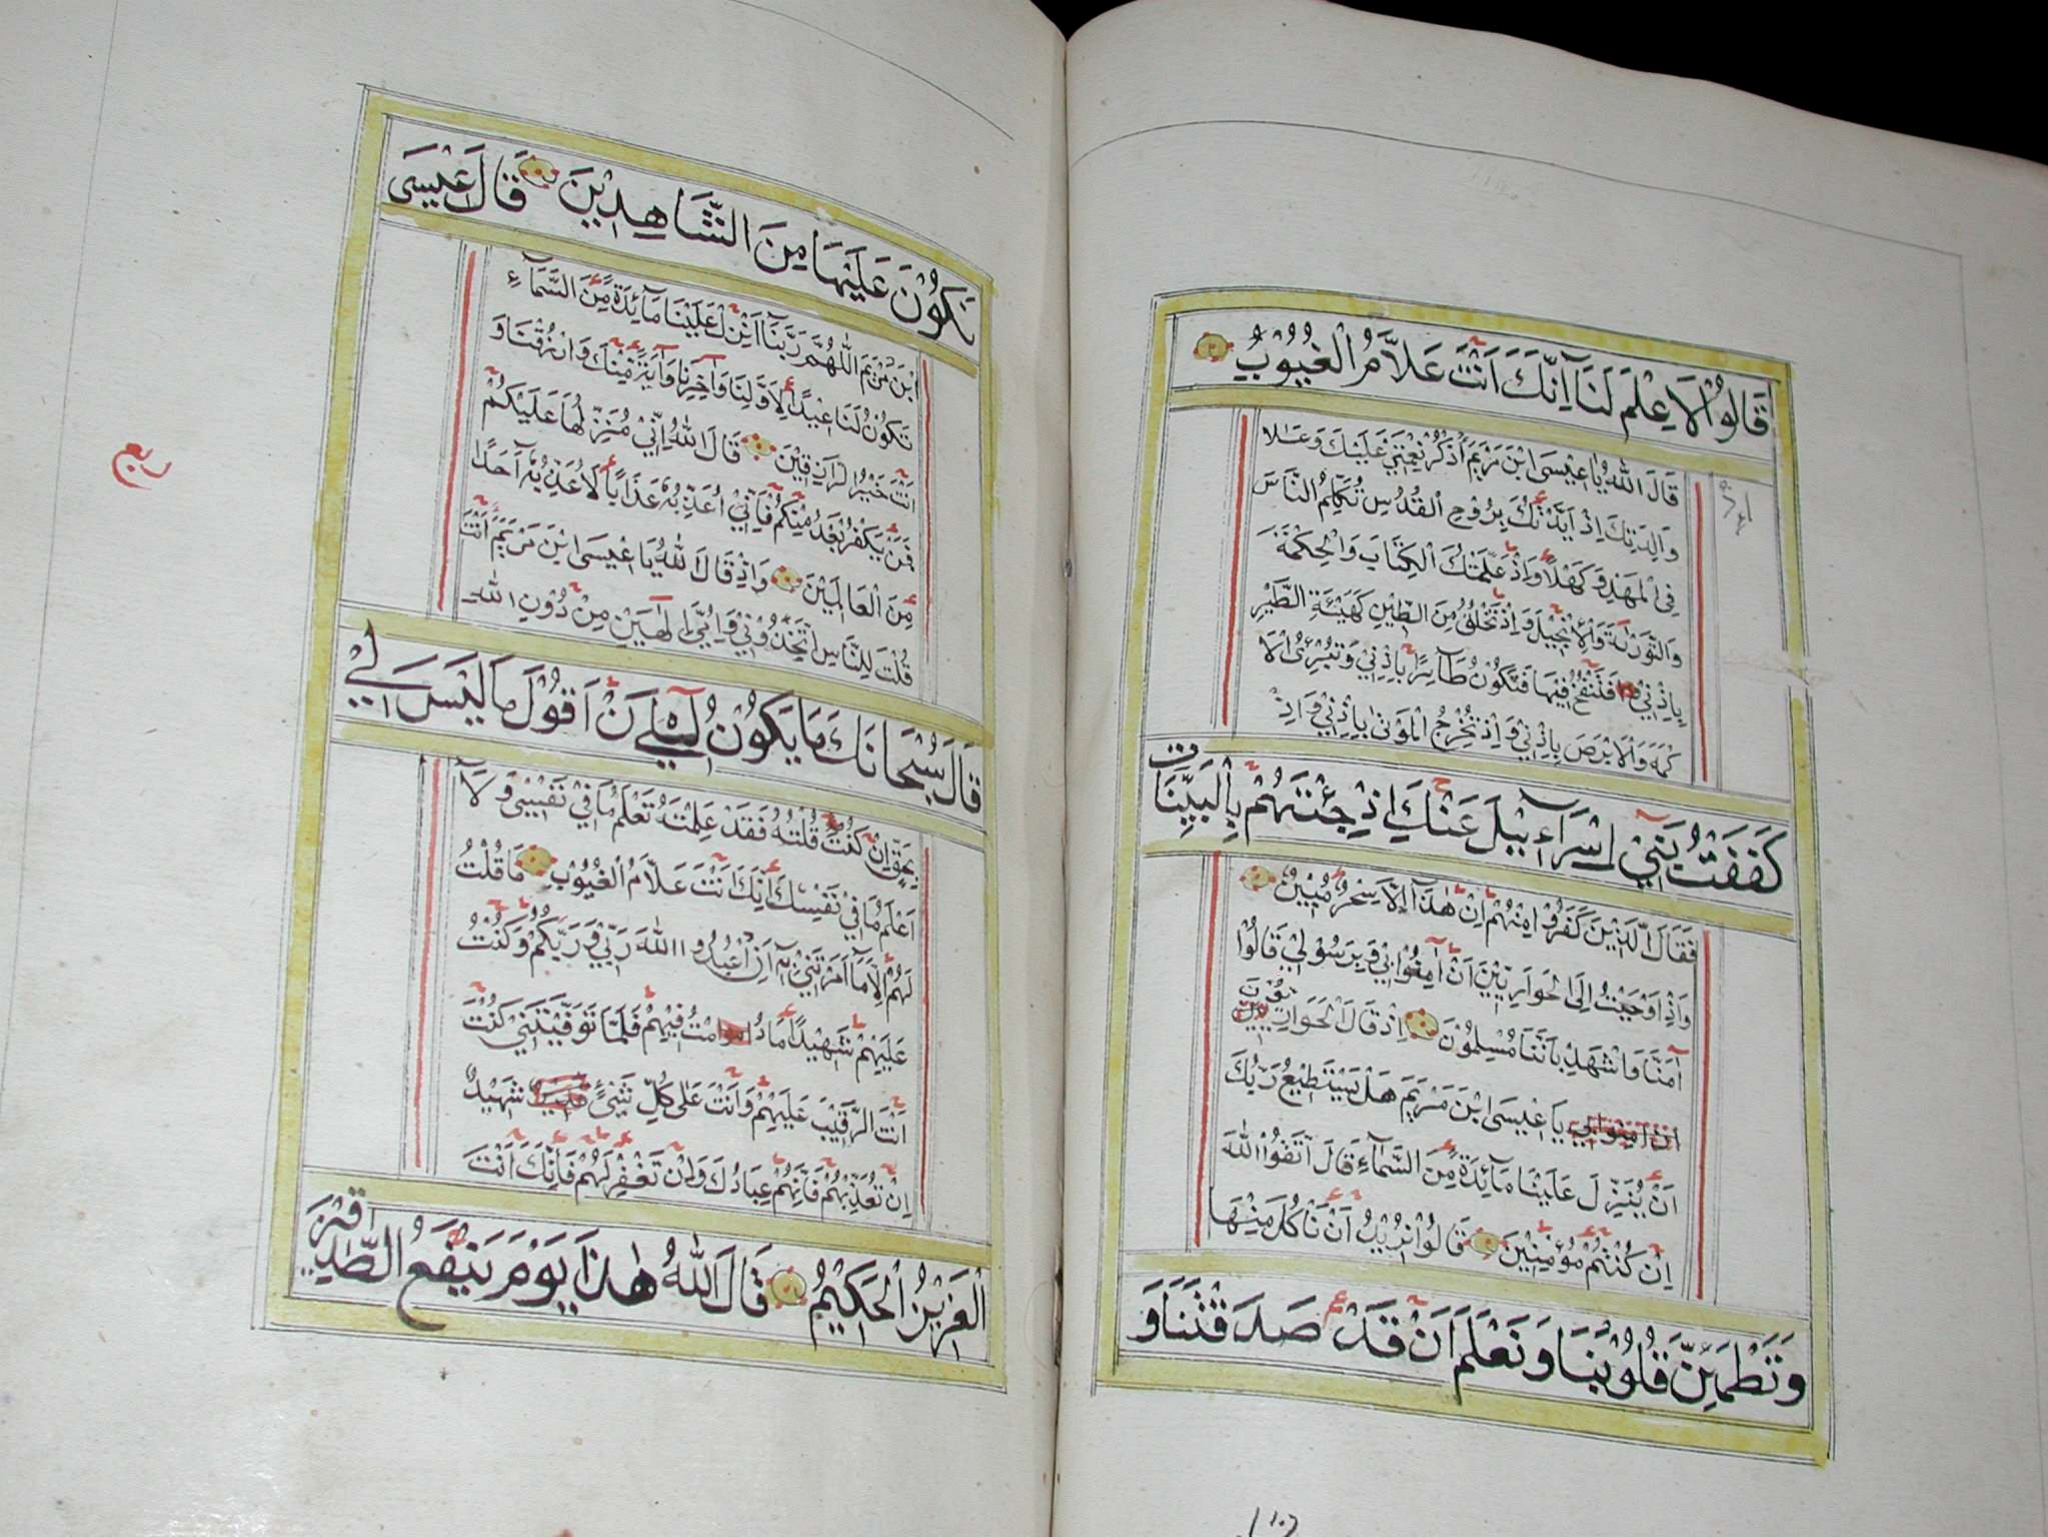 قَالُوْا لَا عِلْمَ لَنَا اِنَّكَ اَنْتَ عَلَّامُ الْغُيُوْبُ
قَالَ اللّٰهُ يَا عِيْسَى ابْنَ مَرْيَمَ اُذْكُرْ نِعْمَتِيْ عَلَيْكَ وَعَلَا
وَالِدَتِكَ اِذْ اَيَّدْتُكَ بِرُوْحِ الْقُدُسِ تُكَلِّمُ النَّاسَ
فِى الْمَهْدِ وَكَهْلًا وَاِذْ عَلَّمْتُكَ الْكِتَابَ وَالْحِكْمَةَ
وَالتَّوْرٰىةَ وَالْاِنْجِيْلَ وَاِذْ تَخْلُقُ مِنَ الطِّيْنِ كَهَيْئَةِ الطَّيْرِ
بِاِذْنِيْ فَتَنْفُخُ فِيْهَا فَتَكُوْنُ طَآئِرًا بِاِذْنِيْ وَتُبْرِئُ الْاَ
كْمَهَ وَالْاَبْرَصَ بِاِذْنِيْ وَاِذْ تُخْرِجُ الْمَوْتٰى بِاِذْنِيْ وَاِذْ
كَفَفْتُ بَنِيْ اِسْرَآءِيْلَ عَنْكَ اِذْ جِئْتَهُمْ بِالْبَيِّنَاتِ
فَقَالَ الَّذِيْنَ كَفَرُوْا مِنْهُمْ اِنْ هٰذَآ اِلَّا سِحْرٌ مُبِيْنٌ
وَاِذْ اَوْحَيْتُ اِلَى الْحَوَارِيِّيْنَ اَنْ آمِنُوْا بِيْ وَبِرَسُوْلِيْ قَالُوْا
آمَنَّا وَاشْهَدْ بِاَنَّنَا مُسْلِمُوْنَ اِذْ قَالَ الْحَوَارِيُّوْنَ
ان آمنوا بي يَا عِيْسَى ابْنَ مَرْيَمَ هَلْ يَسْتَطِيْعُ رَبُّكَ
اَنْ يُنَزِّلَ عَلَيْنَا مَآئِدَةً مِنَ السَّمَآءِ قَالَ اتَّقُوْا اللّٰهَ
اِنْ كُنْتُمْ مُؤْمِنِيْنَ قَالُوْا نُرِيْدُ اَنْ نَاْكُلَ مِنْهَا
وَتَطْمَئِنَّ قُلُوْبُنَا وَنَعْلَمَ اَنْ قَدْ صَدَقْتَنَا وَ
نَكُوْنَ عَلَيْهَا مِنَ الشَّاهِدِيْنَ قَالَ عِيْسَى
ابْنَ مَرْيَمَ اللّٰهُمَّ رَبَّنَا اَنْزِلْ عَلَيْنَا مَآئِدَةً مِنَ السَّمَآءِ
تَكُوْنُ لَنَا عِيْدًا لِاَوَّلِنَا وَآخِرِنَا وَآيَةً مِنْكَ وَارْزُقْنَا وَ
اَنْتَ خَيْرُ الرَّازِقِيْنَ قَالَ اللّٰهُ اِنِّيْ مُنَزِّلُهَا عَلَيْكُمْ
فَمَنْ يَكْفُرْ بَعْدُ مِنْكُمْ فَاِنِّيْ اُعَذِّبُهُ عَذَابًا لَا اُعَذِّبُهُ اَحَدًا
مِنَ الْعَالَمِيْنَ وَاِذْ قَالَ اللّٰهُ يَا عِيْسَى ابْنَ مَرْيَمَ اَنْتَ
قُلْتَ لِلنَّاسِ اتَّخِذُوْنِيْ وَاُمِّيَ اِلٰهَيْنِ مِنْ دُوْنِ اللّٰهِ
قَالَ سُبْحَانَكَ مَا يَكُوْنُ لِيْ اَنْ اَقُوْلَ مَا لَيْسَ لِيْ
بِحَقٍّ اِنْ كُنْتُ قُلْتُهُ فَقَدْ عَلِمْتَهُ تَعْلَمُ مَا فِيْ نَفْسِيْ وَلَا
اَعْلَمُ مَا فِيْ نَفْسِكَ اِنَّكَ اَنْتَ عَلَّامُ الْغُيُوْبِ مَا قُلْتُ
لَهُمْ اِلَّا مَآ اَمَرْتَنِيْ بِهِ اَنِ اعْبُدُوا اللّٰهَ رَبِّيْ وَرَبَّكُمْ وَكُنْتُ
عَلَيْهِمْ شَهِيْدًا مَا دُمْتُ فِيْهِمْ فَلَمَّا تَوَفَّيْتَنِيْ كُنْتَ
اَنْتَ الرَّقِيْبَ عَلَيْهِمْ وَاَنْتَ عَلٰى كُلِّ شَيْئٍ شَهِيْدٌ
اِنْ تُعَذِّبْهُمْ فَاِنَّهُمْ عِبَادُكَ وَاِنْ تَغْفِرْ لَهُمْ فَاِنَّكَ اَنْتَ
الْعَزِيْزُ الْحَكِيْمُ قَالَ اللّٰهُ هٰذَا يَوْمَ يَنْفَعُ الصّٰدِقِيْنَ
ربع